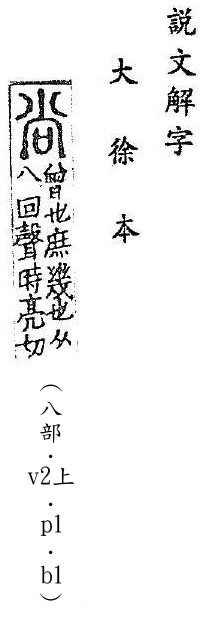 說文解字
大徐本
尚
曾也庶幾也从
八向聲時亮切
（八部．v2上．p1．b1）